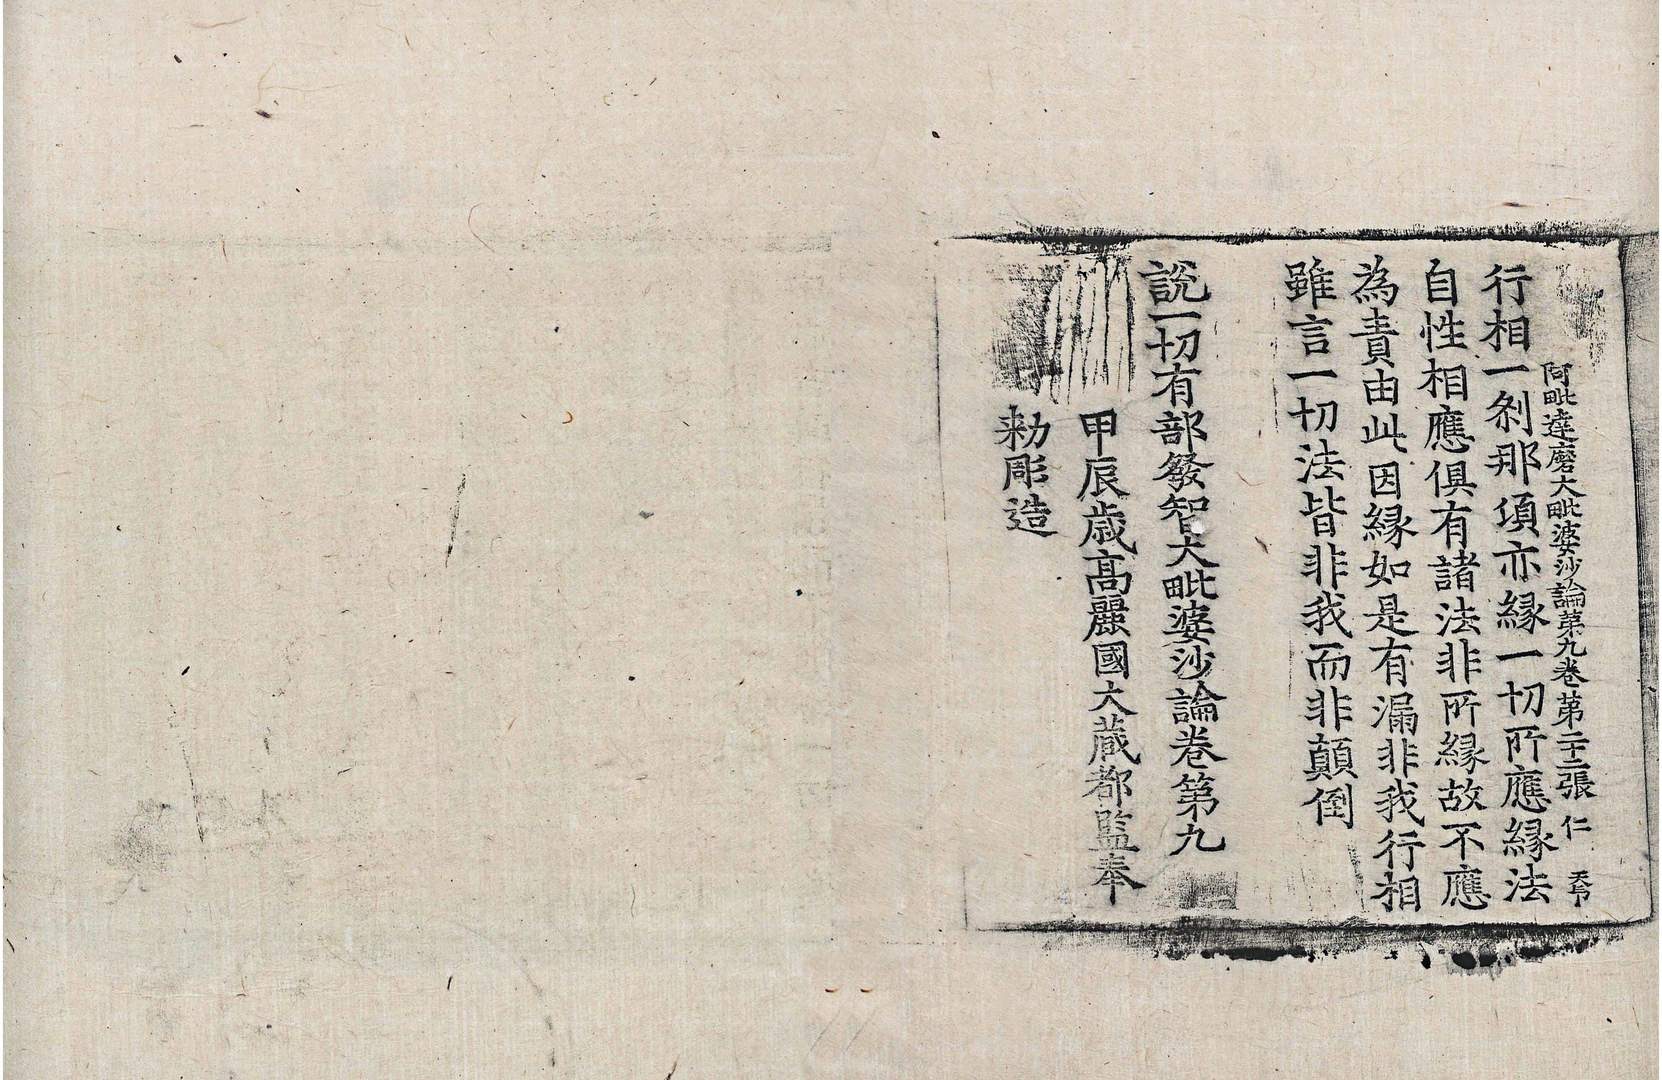 阿毗達磨大毗婆沙論第九卷第二十二張 仁
行相一刹那頃亦緣一切所應緣法
自性相應俱有諸法非所緣故不應
為責由此因緣如是有漏非我行相
雖言一切法皆非我而非顛倒
說一切有部發智大毗婆沙論卷第九
甲辰歲高麗國大藏都監奉
勑彫造